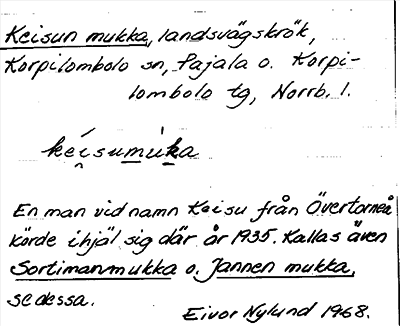 Keisun mukka, landsvägskrök,
Korpilombolo sn, Pajala o. Korpi-
lombolo tg, Norrb. l.
kéi̯sumùk̠a
En man vid namn Keisu från Övertorneå
körde ihjäl sig där år 1935. Kallas även
Sortimanmukka o. Jannen mukka,
se dessa.
Eivor Nylund 1968.